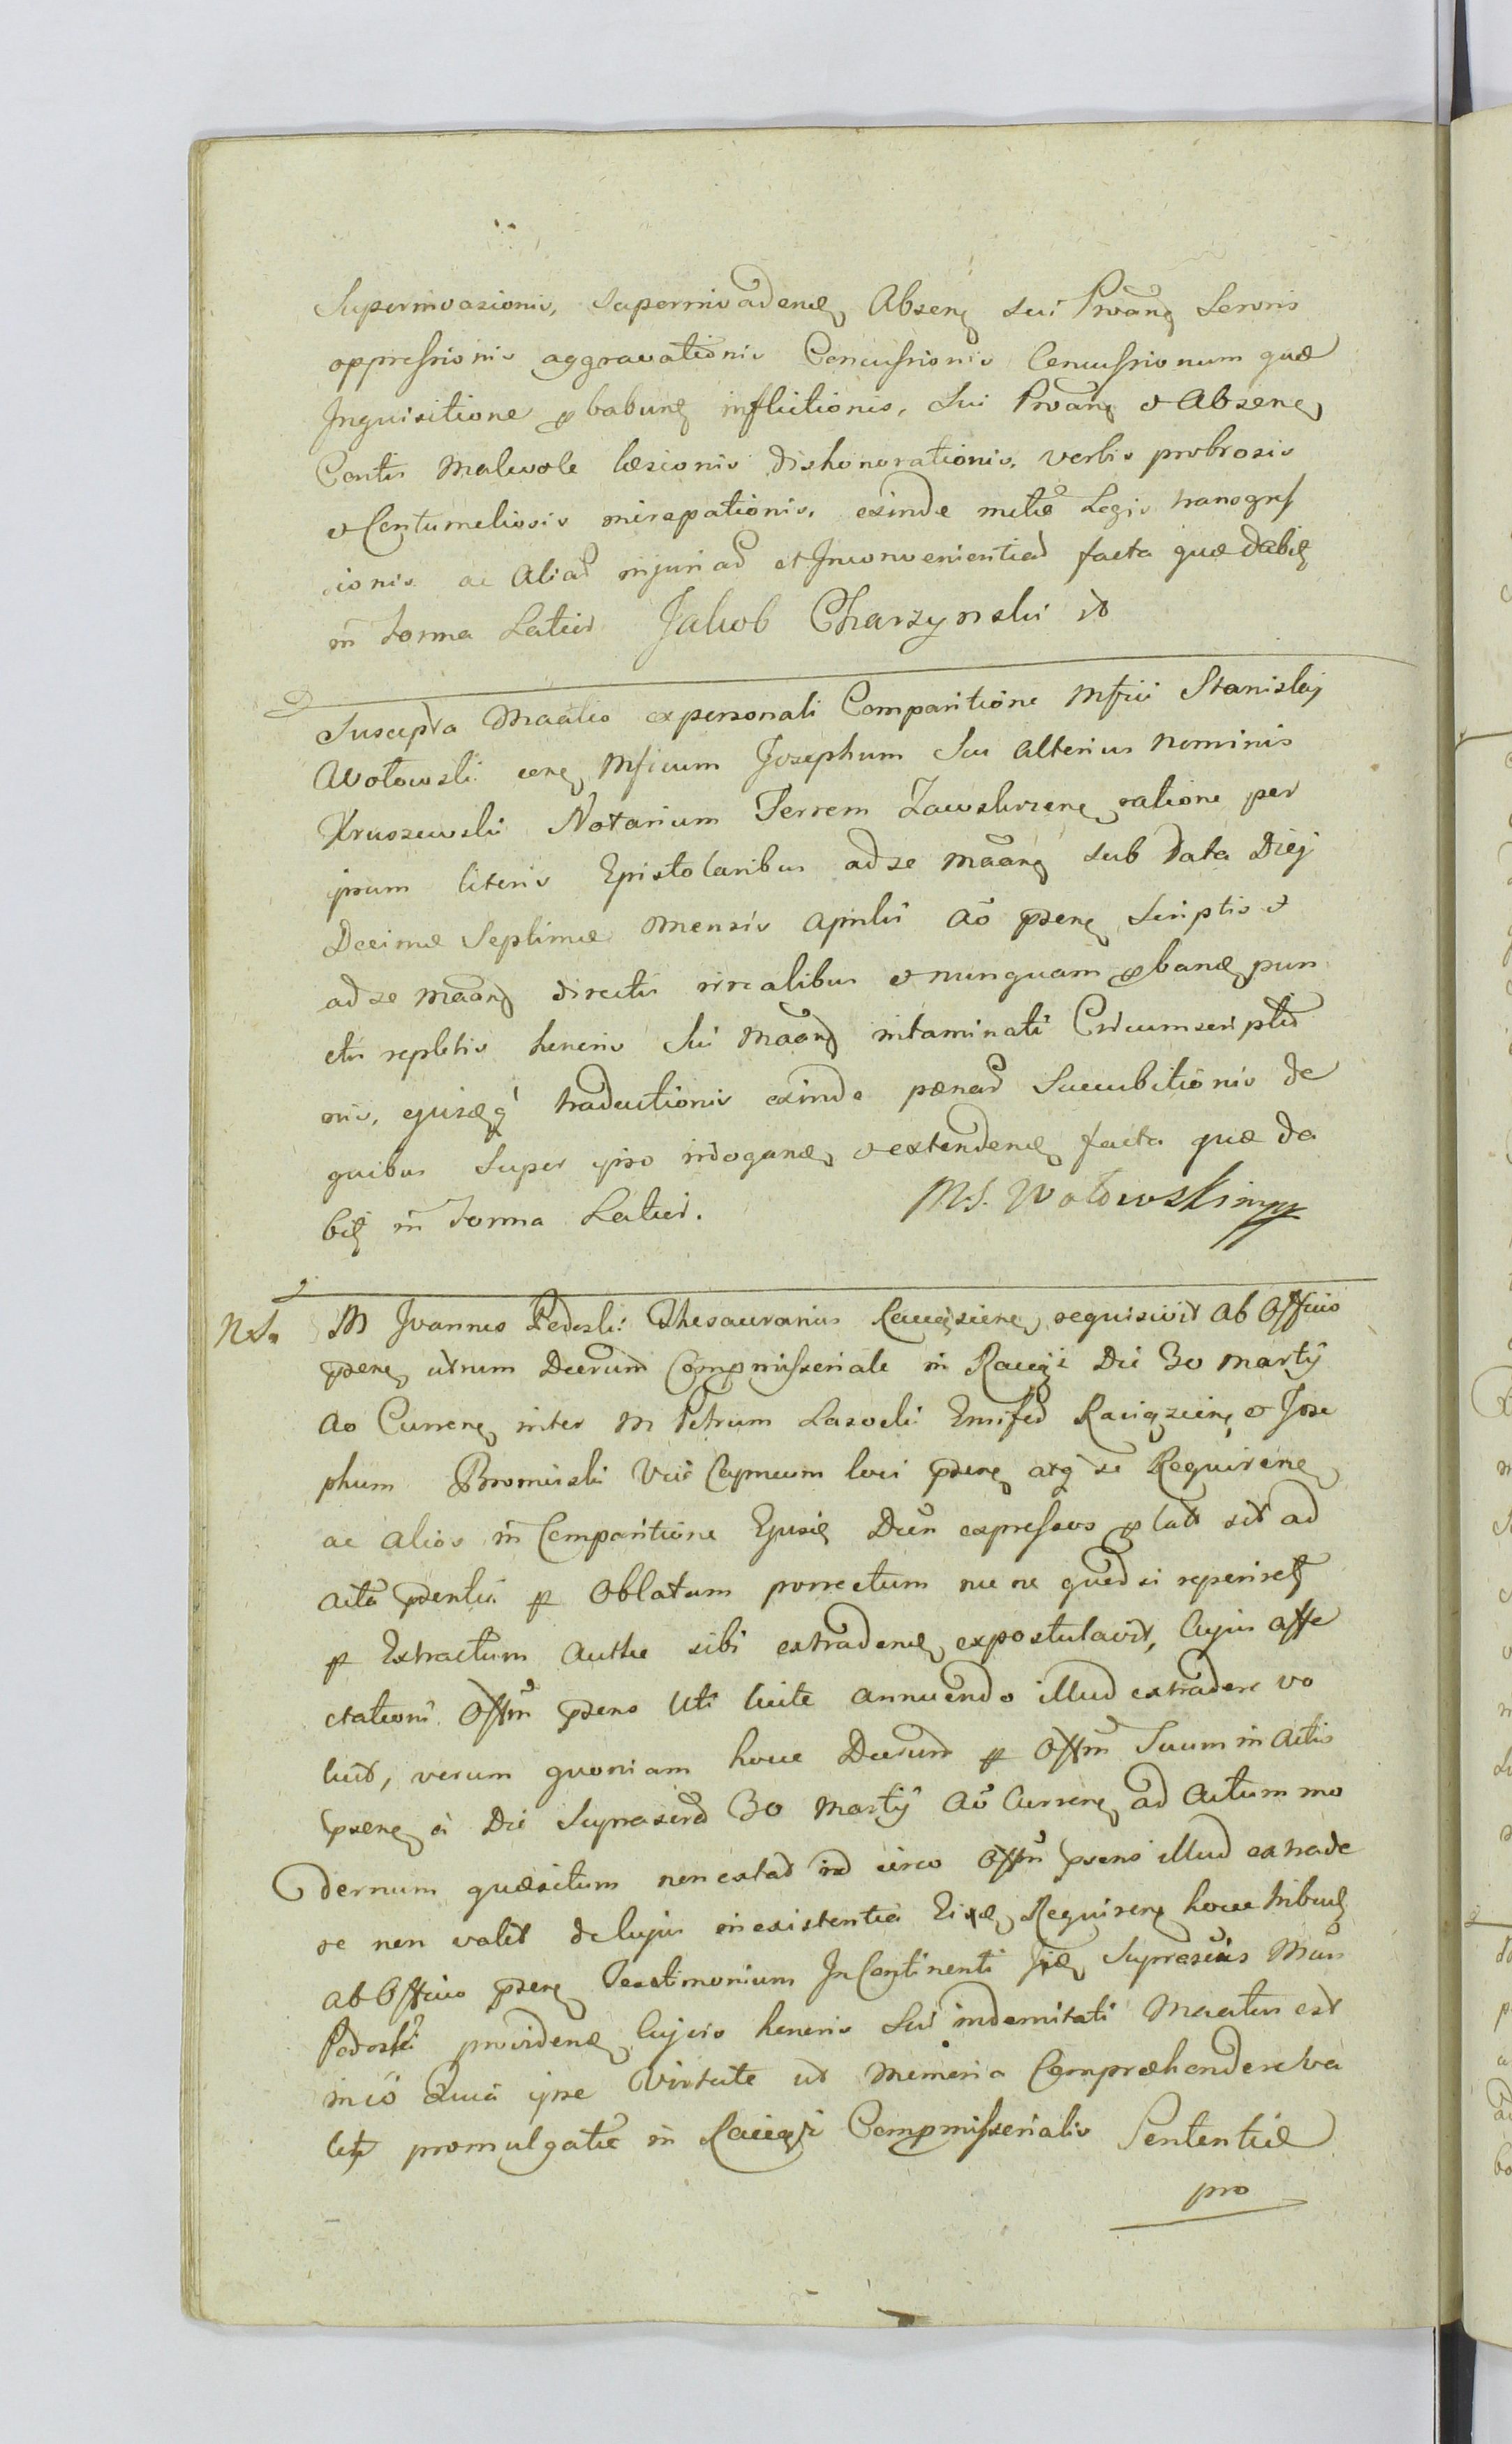 Superinvasionis, Superinvadenę Absenę sui Proanę Servis
oppressionis aggravationis Concussionis Concussionum quæ
Inquisitione pbabunę inflictionis, Sui Proanę et Absenę
Contis Malevole læsionis dishonorationis, verbis probrosis
et Contumeliosis increpationis, exinde Legis transgres
sionis ac Alias injurias et Inconvenientias facta quæ dabię
in Forma Latior Jakob Charzynski
Suscepta Maalis ex personali Comparitione Mfici Stanislaj
Wołowski Mficum Josephum Seu alterius Nominis
Kruszewski Notarium Terrem Zawskrzenę ratione per
ipsum literis Epistolaribus ad se Maanę sub data Diej
Decimæ Septimæ Mensis Aprilis Ao psenę Scriptis et
ad se Maanę directis irrealibus et nunquam pbandę pun
ctis repletis honoris Sui Maanę intaminati Circumscriptio
nis, ejusdęq traductionis exinde pænas Succubitionis de
quibus Super ipso irroganę et extendenę facta quæ da
bię in Forma Latior. M.S. Wołowski mpp
Nta M Joannes Pedoski Thesaurarius Raciąziene, requisivit ab Officio
psenę utrum Decrum Compmisseriale in Raciąż Die 30 Martÿ
Ao Currenę inter M Petrum Lasocki Ensifer Raciązienę et Jose
phum Bromirski Vice Capneum loci psenę atq se Requirenę
ac alios in Comparitione Ejusdę Decri expressos platt sit ad
Acta psentia p Oblatam porrectum nec ne quod si reperiretę
p Extractum Authe sibi extradenę expostulavit, Cujus affe
ctationi Offm psens Uti licite annuendo illud extradere vo
luit, verum quoniam hocce Decrum p Offm Suum in Actis
psenę à Die Suprascrã 30 Martÿ Ao Currenę ad Actum mo
dernum quæsitum non extat id circo Offm psens illud extrade
re non valet de Cujus inexistentia Requirenę hocce tribuę
ab Officio psenę Testimonium In Continenti Supras̃us
Podoski providenę Cujus honoris Sui indemnitati Maatus est
in eo quia ipse Virtute ut memoria Compræhendere va
letę promulgatæ in Raciąż Compmisserialis Sententiæ
pro